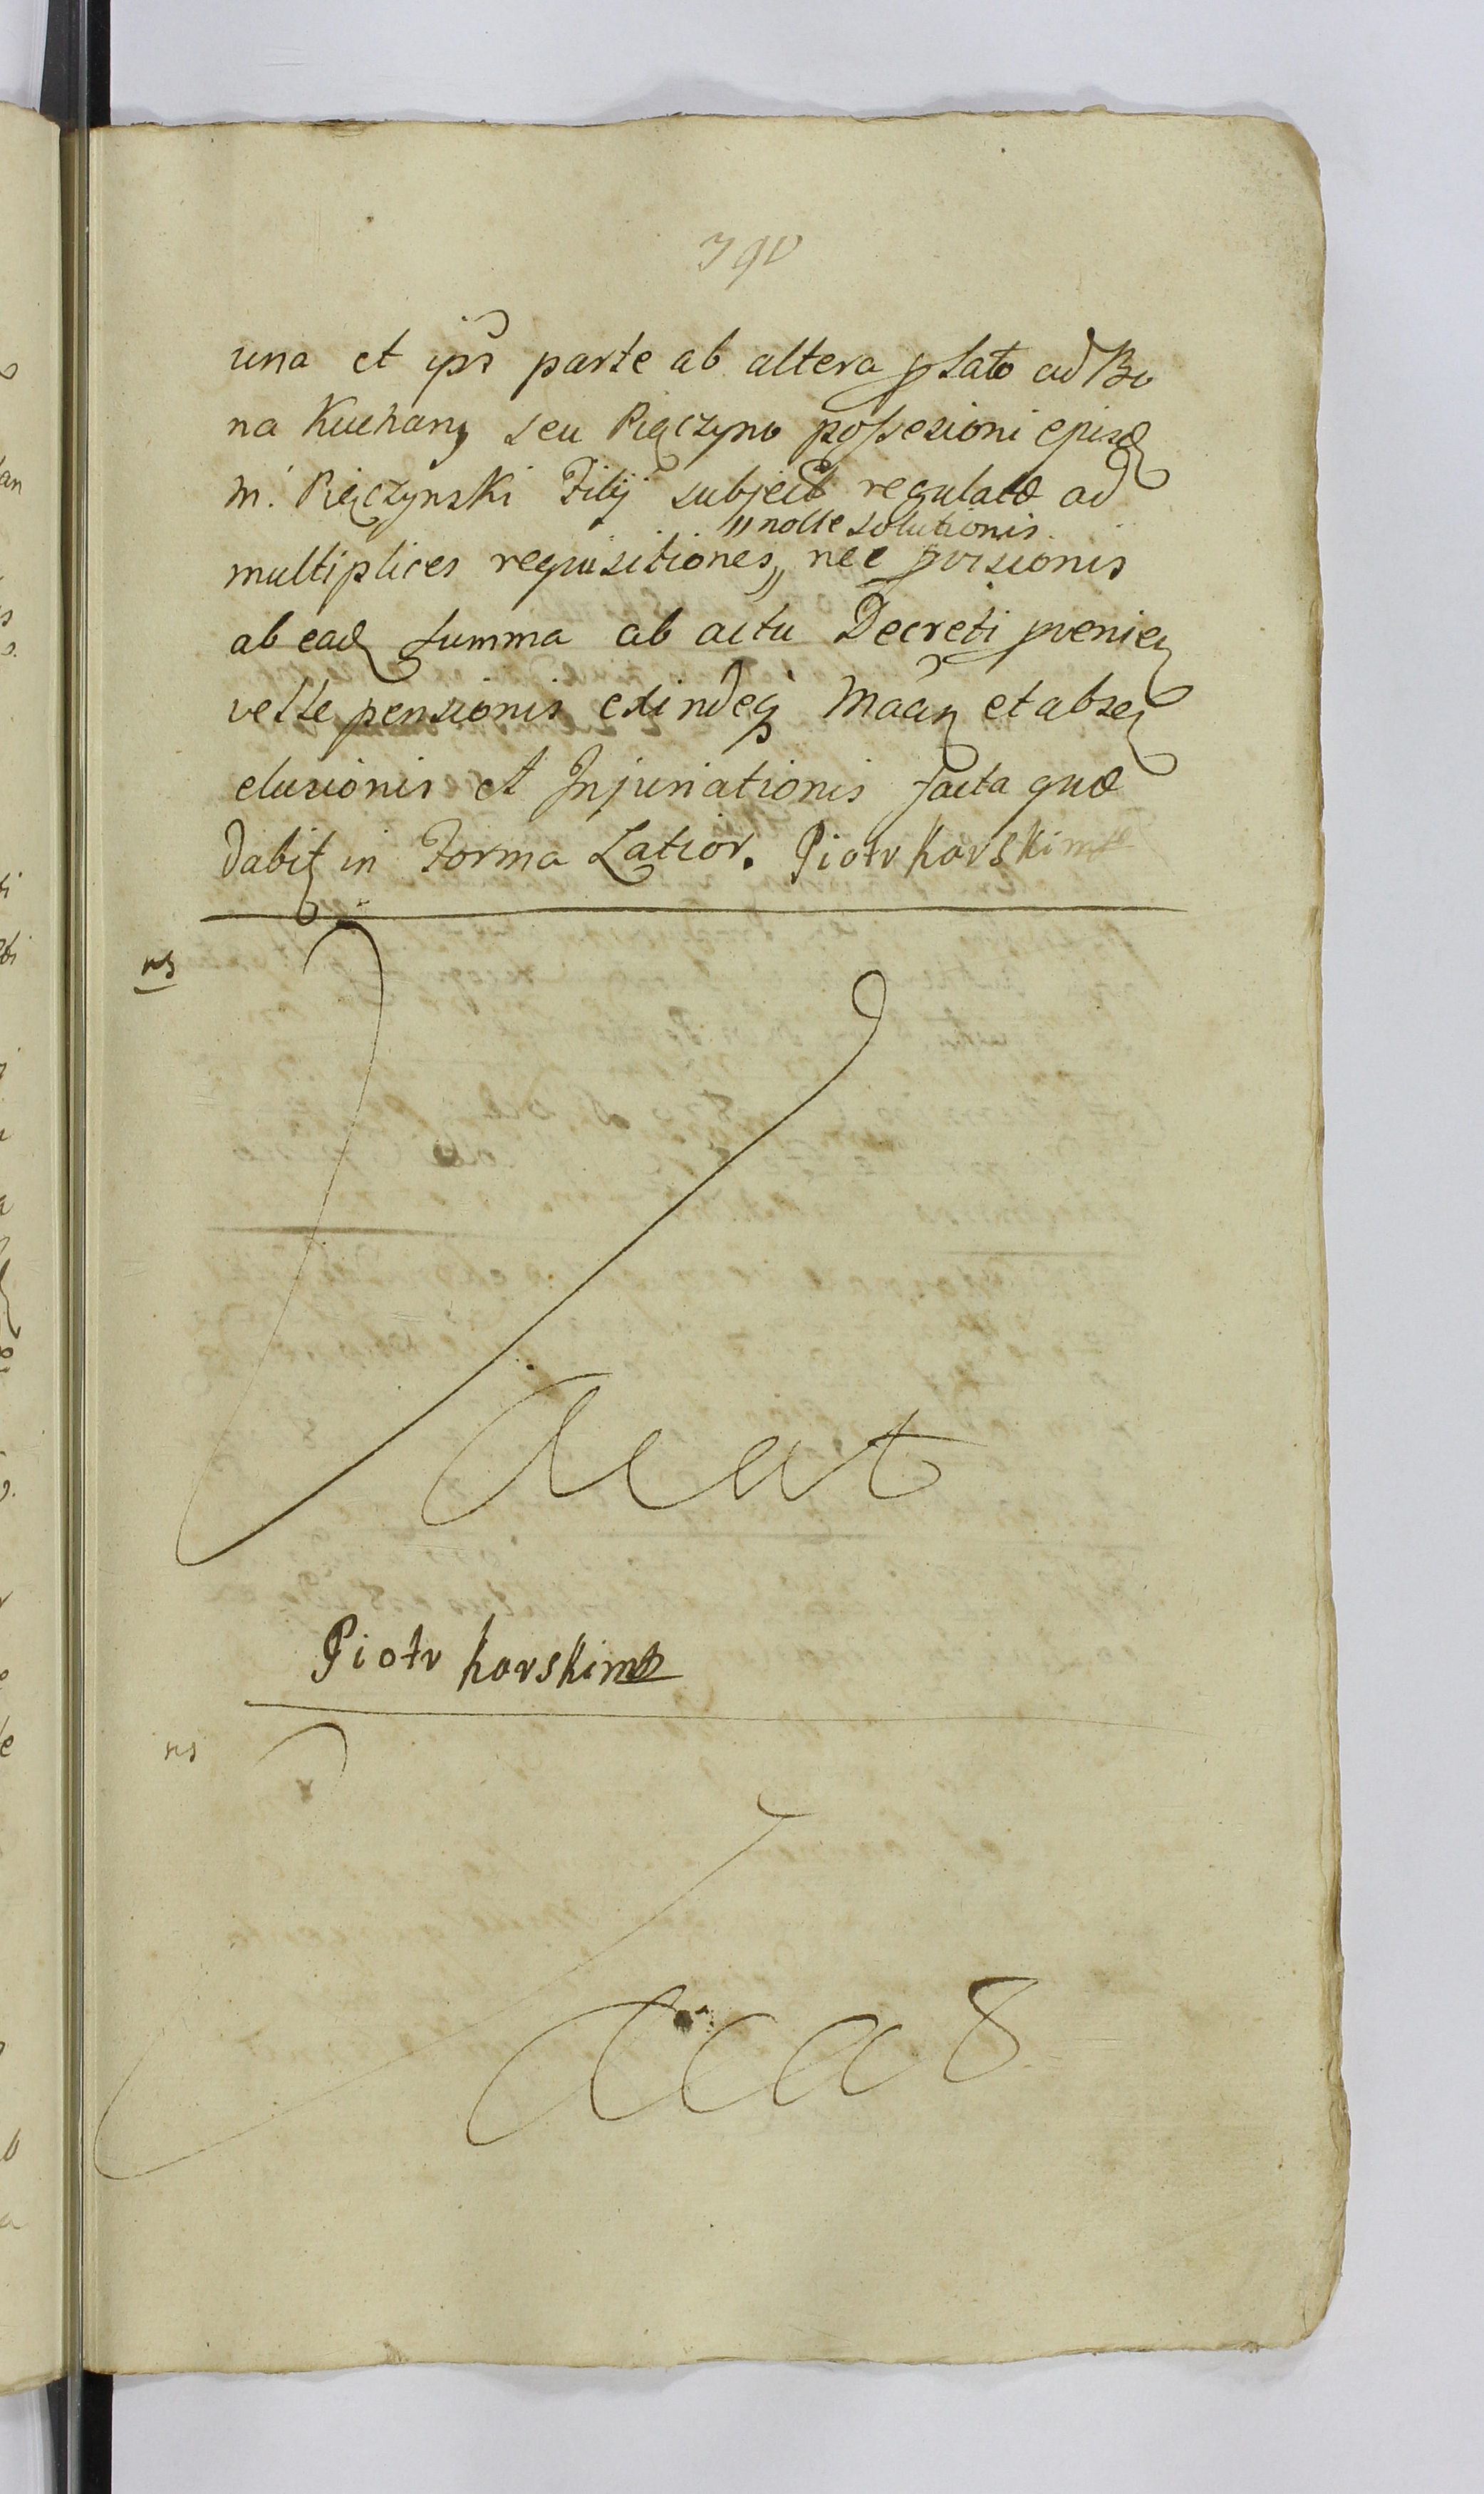 790
una et ips parte ab altera plato ad Bo
na Kuchany seu Pięczyno possesioni episd
m. Pięczynski Filij subject regulate ad
"nolle solutionis
multiplices requisitiones,, nec provisionis
ab ead summa ab actu Decreti proenien
velle pensionis exindeq Maan et absen
elusionis et Injuriationis facta quae
dabit in Forma Latior. Piotrkorski mp
ns
Vacat
Piotrkorski mp
ns
Vacat